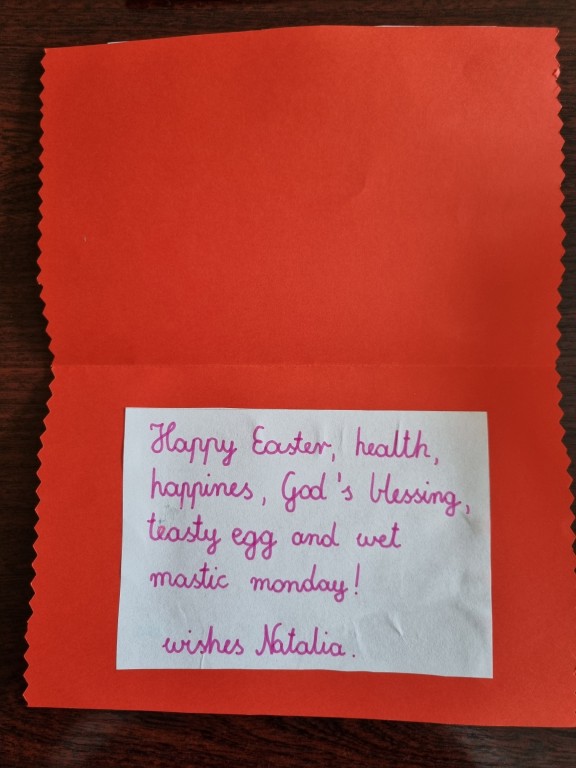 Happy Easter, health,
happines, God's blessing,
teasty egg and wet
mastic monday!
wishes Natalia.